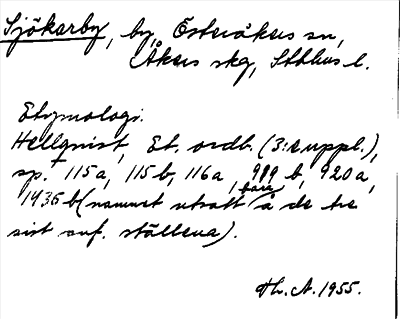 Sjökarby, by, Österåkers sn,
Åkers skg, Sthlms l.
Etymologi.
Hellquist, Et. ordb. (3:e uppl.),
sp. 115a, 115b, 116a, 919 b, 920a,
1436b (namnet utsatt bara å de tre
sist anf. ställena).
Th. A. 1955.